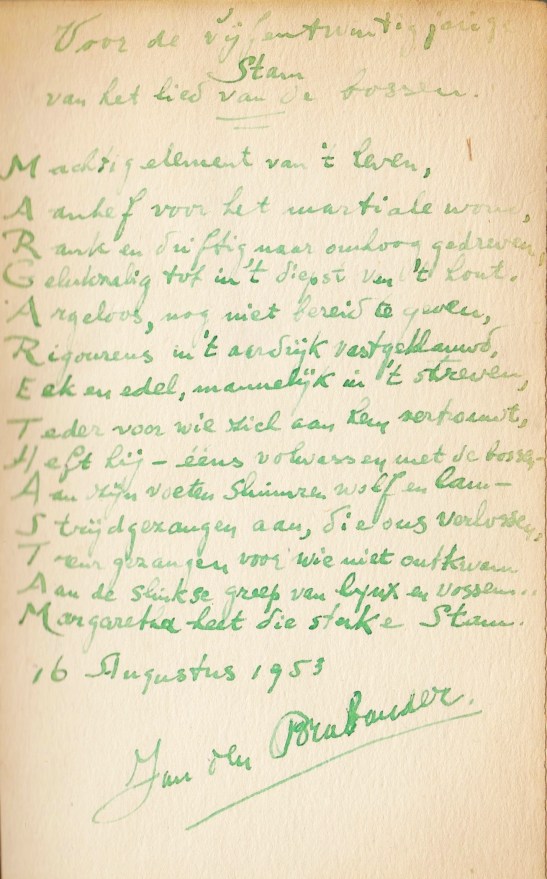 Voor de vijfentwintigjarige
Stam
van het lied van de bossen.
Machtig element van 't leven,
Aanhef voor het martiale woud,
Rank en driftig naar omhoog gedreven,
Gelukzalig tot in 't diepst van 't hout.
Argeloos, nog niet bereid te geven,
Rigoureus in 't aardrijk vastgeklauwd,
Eek en edel, mannelijk in 't streven,
Teder voor wie zich aan hem vertrouwt,
Heft hij – ééns volwassen met de bossen –
Aan zijn voeten sluimren wolf en lam –
Strijdgezangen aan, die ons verlossen,
Treurgezangen voor wie niet ontkwam
Aan de slinkse greep van lynx en vossen..
Margaretha heet die sterke Stam.
16 Augustus 1953
Jan den Brabander.